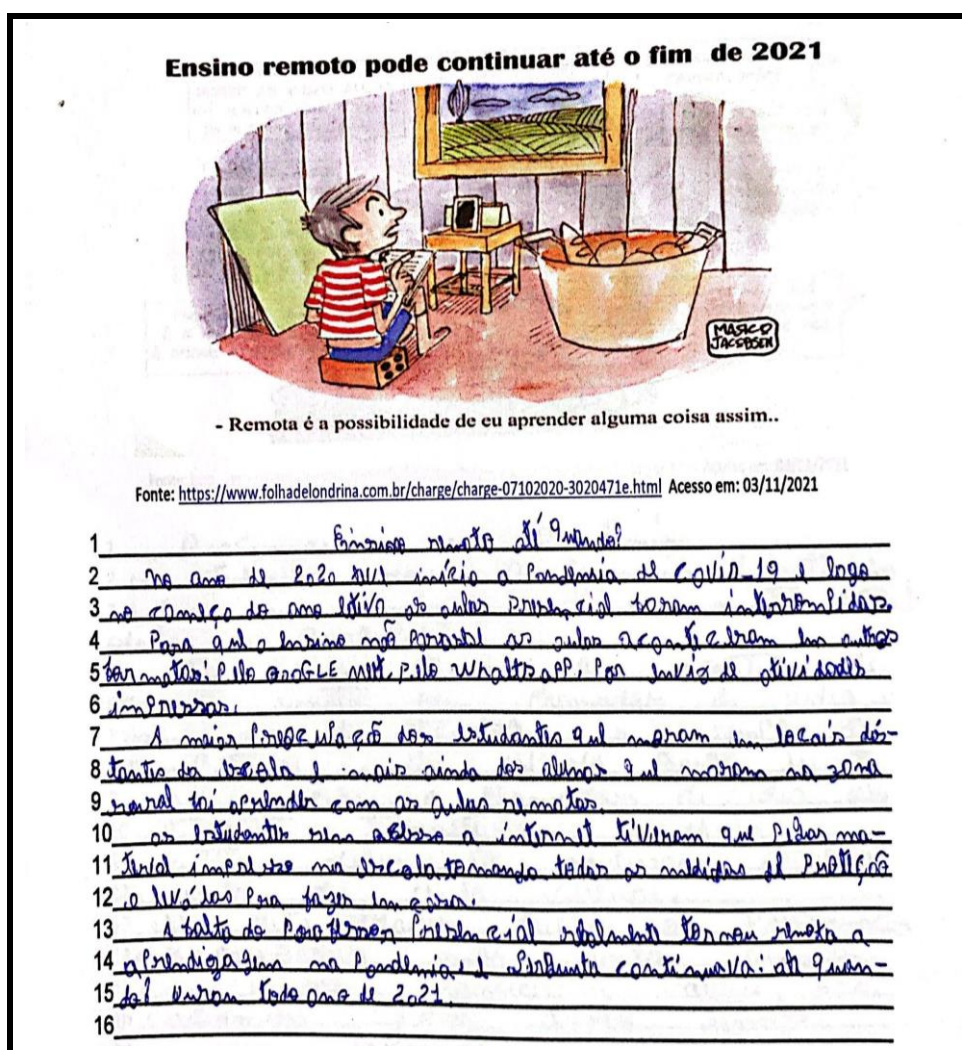 Ensino remoto pode continuar até o fim de 2021
MARCO
JACOBSEN
- Remota é a possibilidade de eu aprender alguma coisa assim..
Fonte: https://www.folhadelondrina.com.br/charge/charge-07102020-3020471e.html Acesso em: 03/11/2021
1 Ensino remoto até quando?
2 No ano de 2020 teve início a Pandemia de COVID-19 e logo
3 no começo do ano letivo as aulas presencial foram interrompidas.
4 Para que o ensino não parasse as aulas aconteceram em outros
5 formatos: pelo GOOGLE MEET, pelo WhaltsaPP, Por envio de atividades
6 impressas.
7 A maior preocupação dos estudantes que moram em locais dis-
8 tantes da escola e mais ainda dos alunos que moram na zona
9 rural foi aprender com as aulas remotas.
10 os estudantes sem acesso a internet tiveram que pegar ma-
11 terial impresso na escola, tomando todas as medidas de proteção
12 e levá-las pra fazer em casa.
13 A falta do professor presencial realmente tornou remota a
14 aprendizagem na pandemia e pergunta continuava: até quan-
15 do? Durou todo ano de 2021.
16